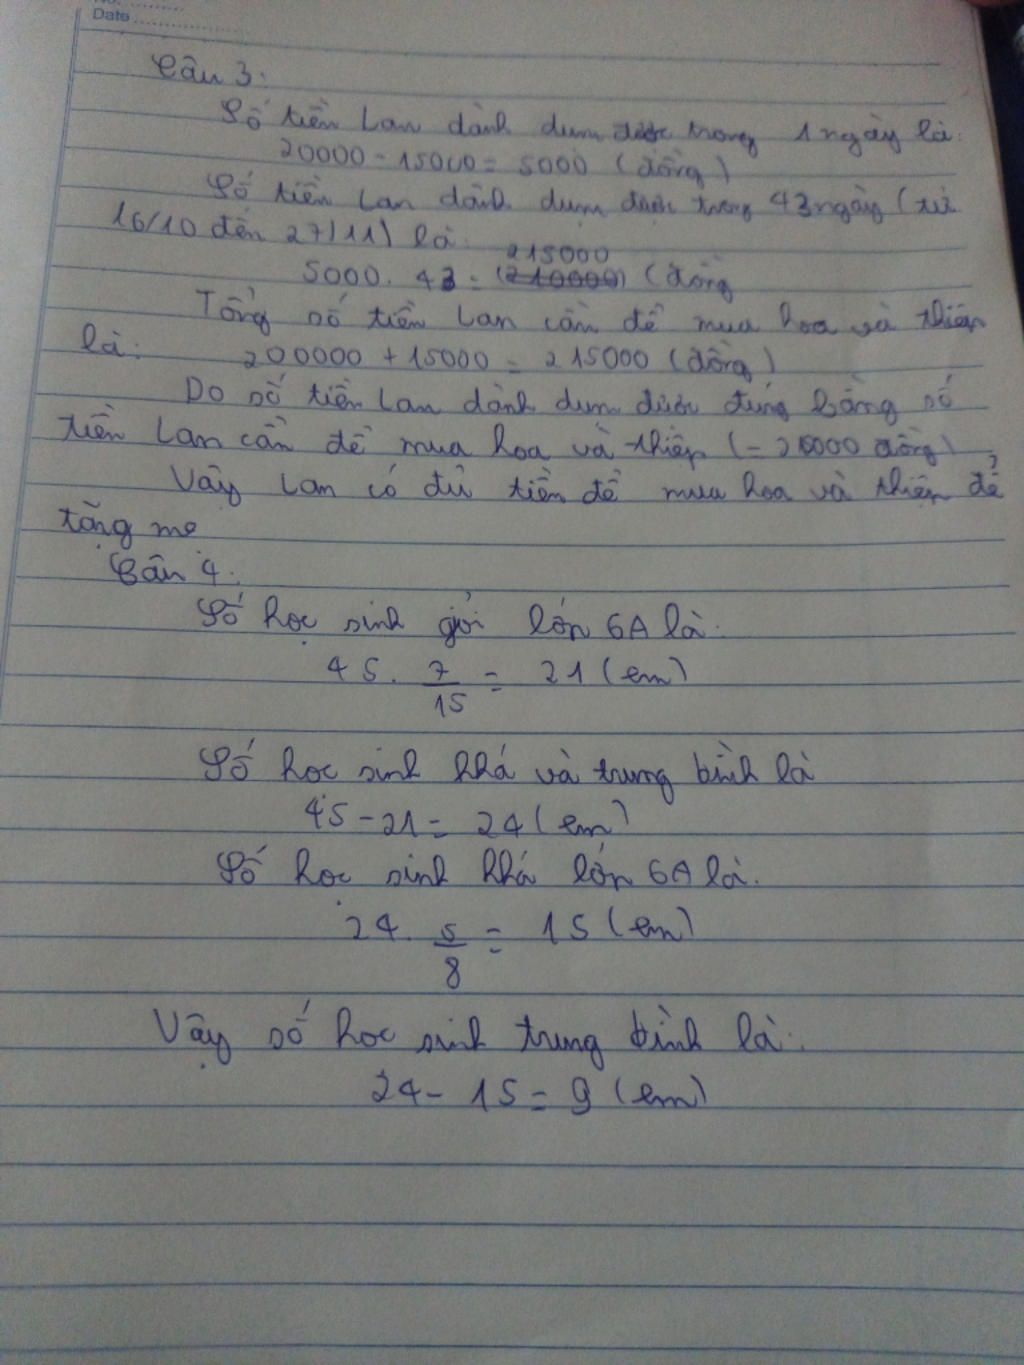 Date
Câu 3:
Số tiền Lan dành dụm được trong 1 ngày là:
20000 - 15000 = 5000 (đồng)
Số tiền Lan dành dụm được trong 43 ngày (từ
16/10 đến 27/11) là:
215000
5000. 43 = (210000) (đồng
Tổng số tiền Lan cần để mua hoa và thiệp
là: 200000 + 15000 = 215000 (đồng)
Do số tiền Lan dành dụm được đúng bằng số
tiền Lan cần để mua hoa và thiệp (= đồng)
Vậy Lan có đủ tiền để mua hoa và thiệp để
tặng mẹ
Câu 4:
Số học sinh giỏi lớp 6A là:
45. 7/15 = 21 (em)
Số học sinh khá và trung bình là
45 - 21 = 24 (em)
Số học sinh khá lớp 6A là:
24. 5/8 = 15 (em)
Vậy số học sinh trung bình là:
24 - 15 = 9 (em)